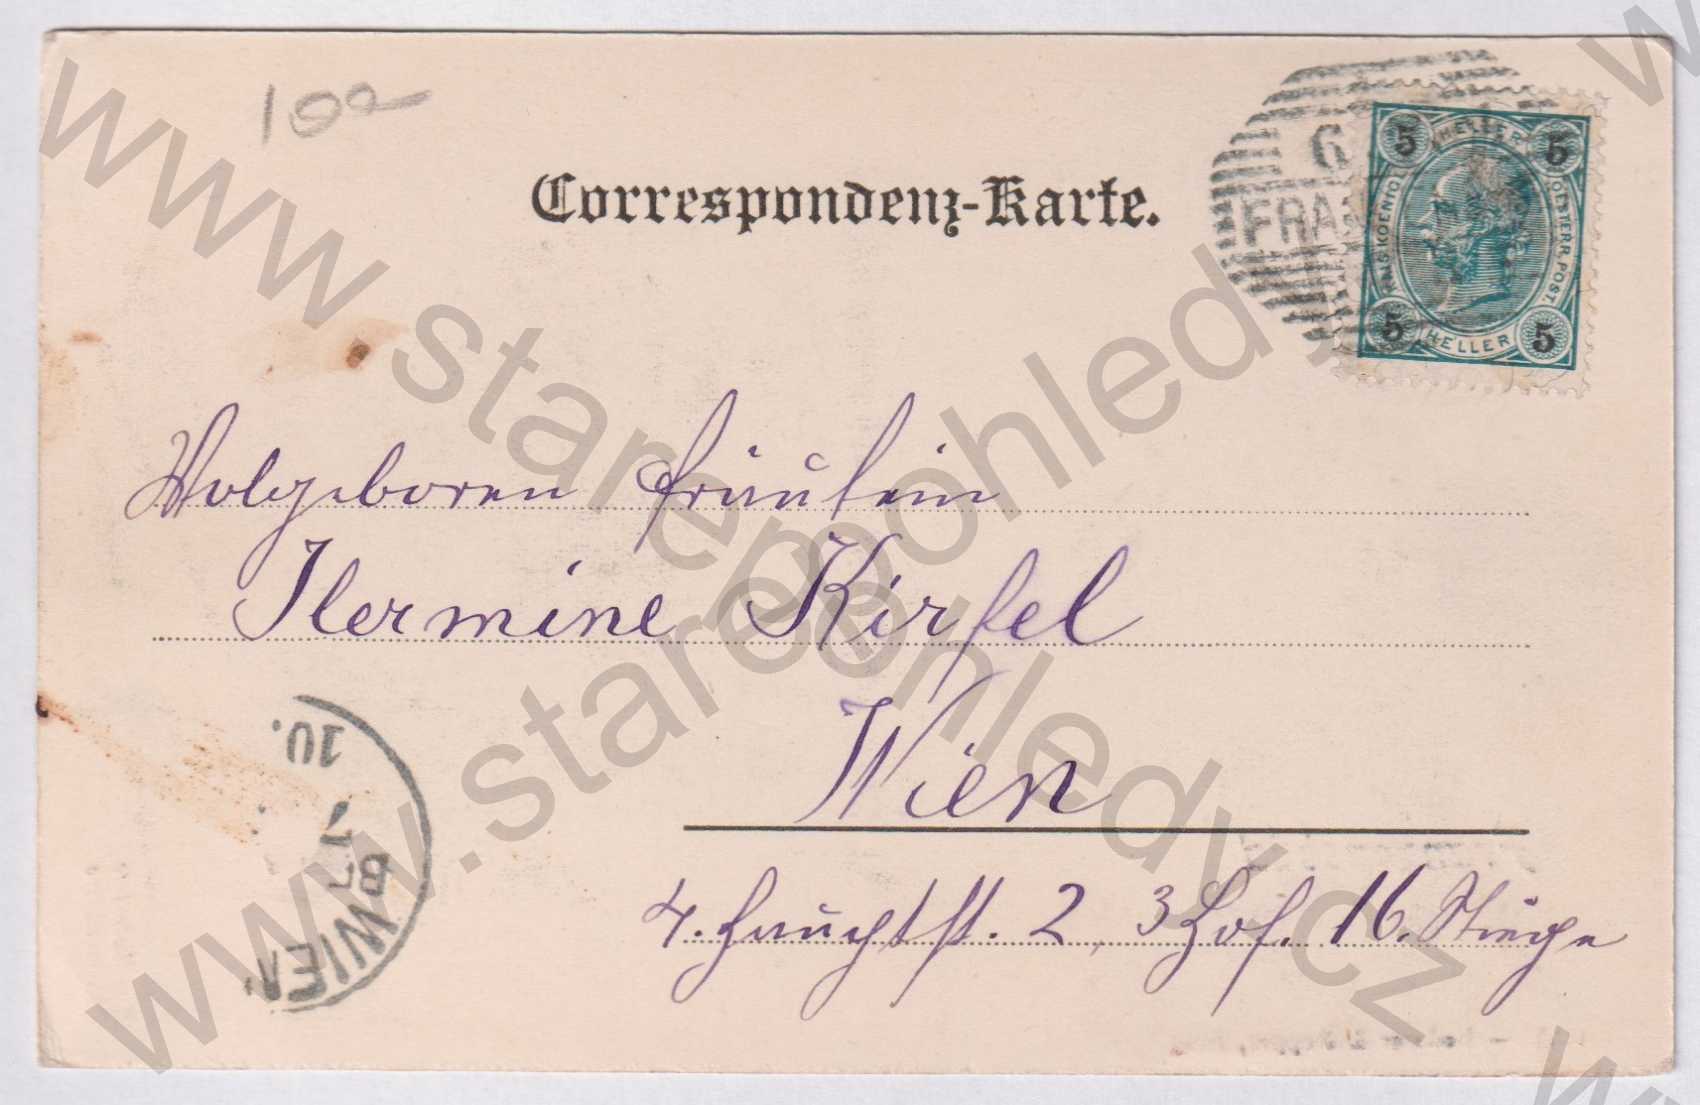 100
Correspondenz-Karte.
6
FRA
5 HELLER 5
KAIS. KOENIGL. OESTERR. POST.
5 HELLER 5
Wolgeboren Fräulein
Hermine Kirfel
Wien
4. Hauptst. 2, 3 Hof. 16. Stiege
10.
7
WIEN
www.starepohledy.cz
www.starepohledy.cz